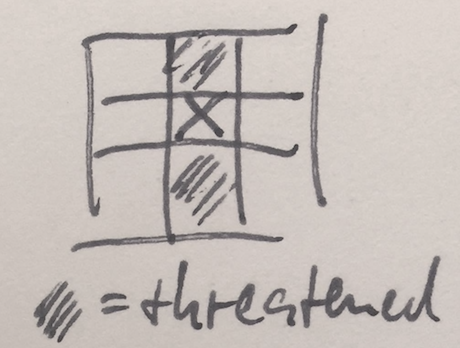 X
= threatened